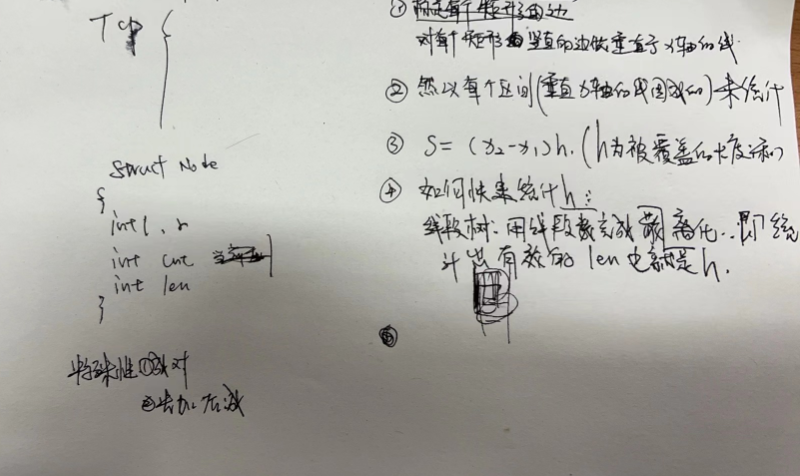 Tcp {
struct Node
{
int l, r
int cnt
int len
}
特殊性①成对
②先加后减
① 每个矩形的边
对每个矩形的竖直的边做垂直于x轴的线
② 然以每个区间(垂直x轴的线围成的)来统计
③ S = (x2-x1)h. (h为被覆盖的长度
④ 如何快来统计h:
线段树. 用线段 离化.. 即统
计出有效的len也就是h.